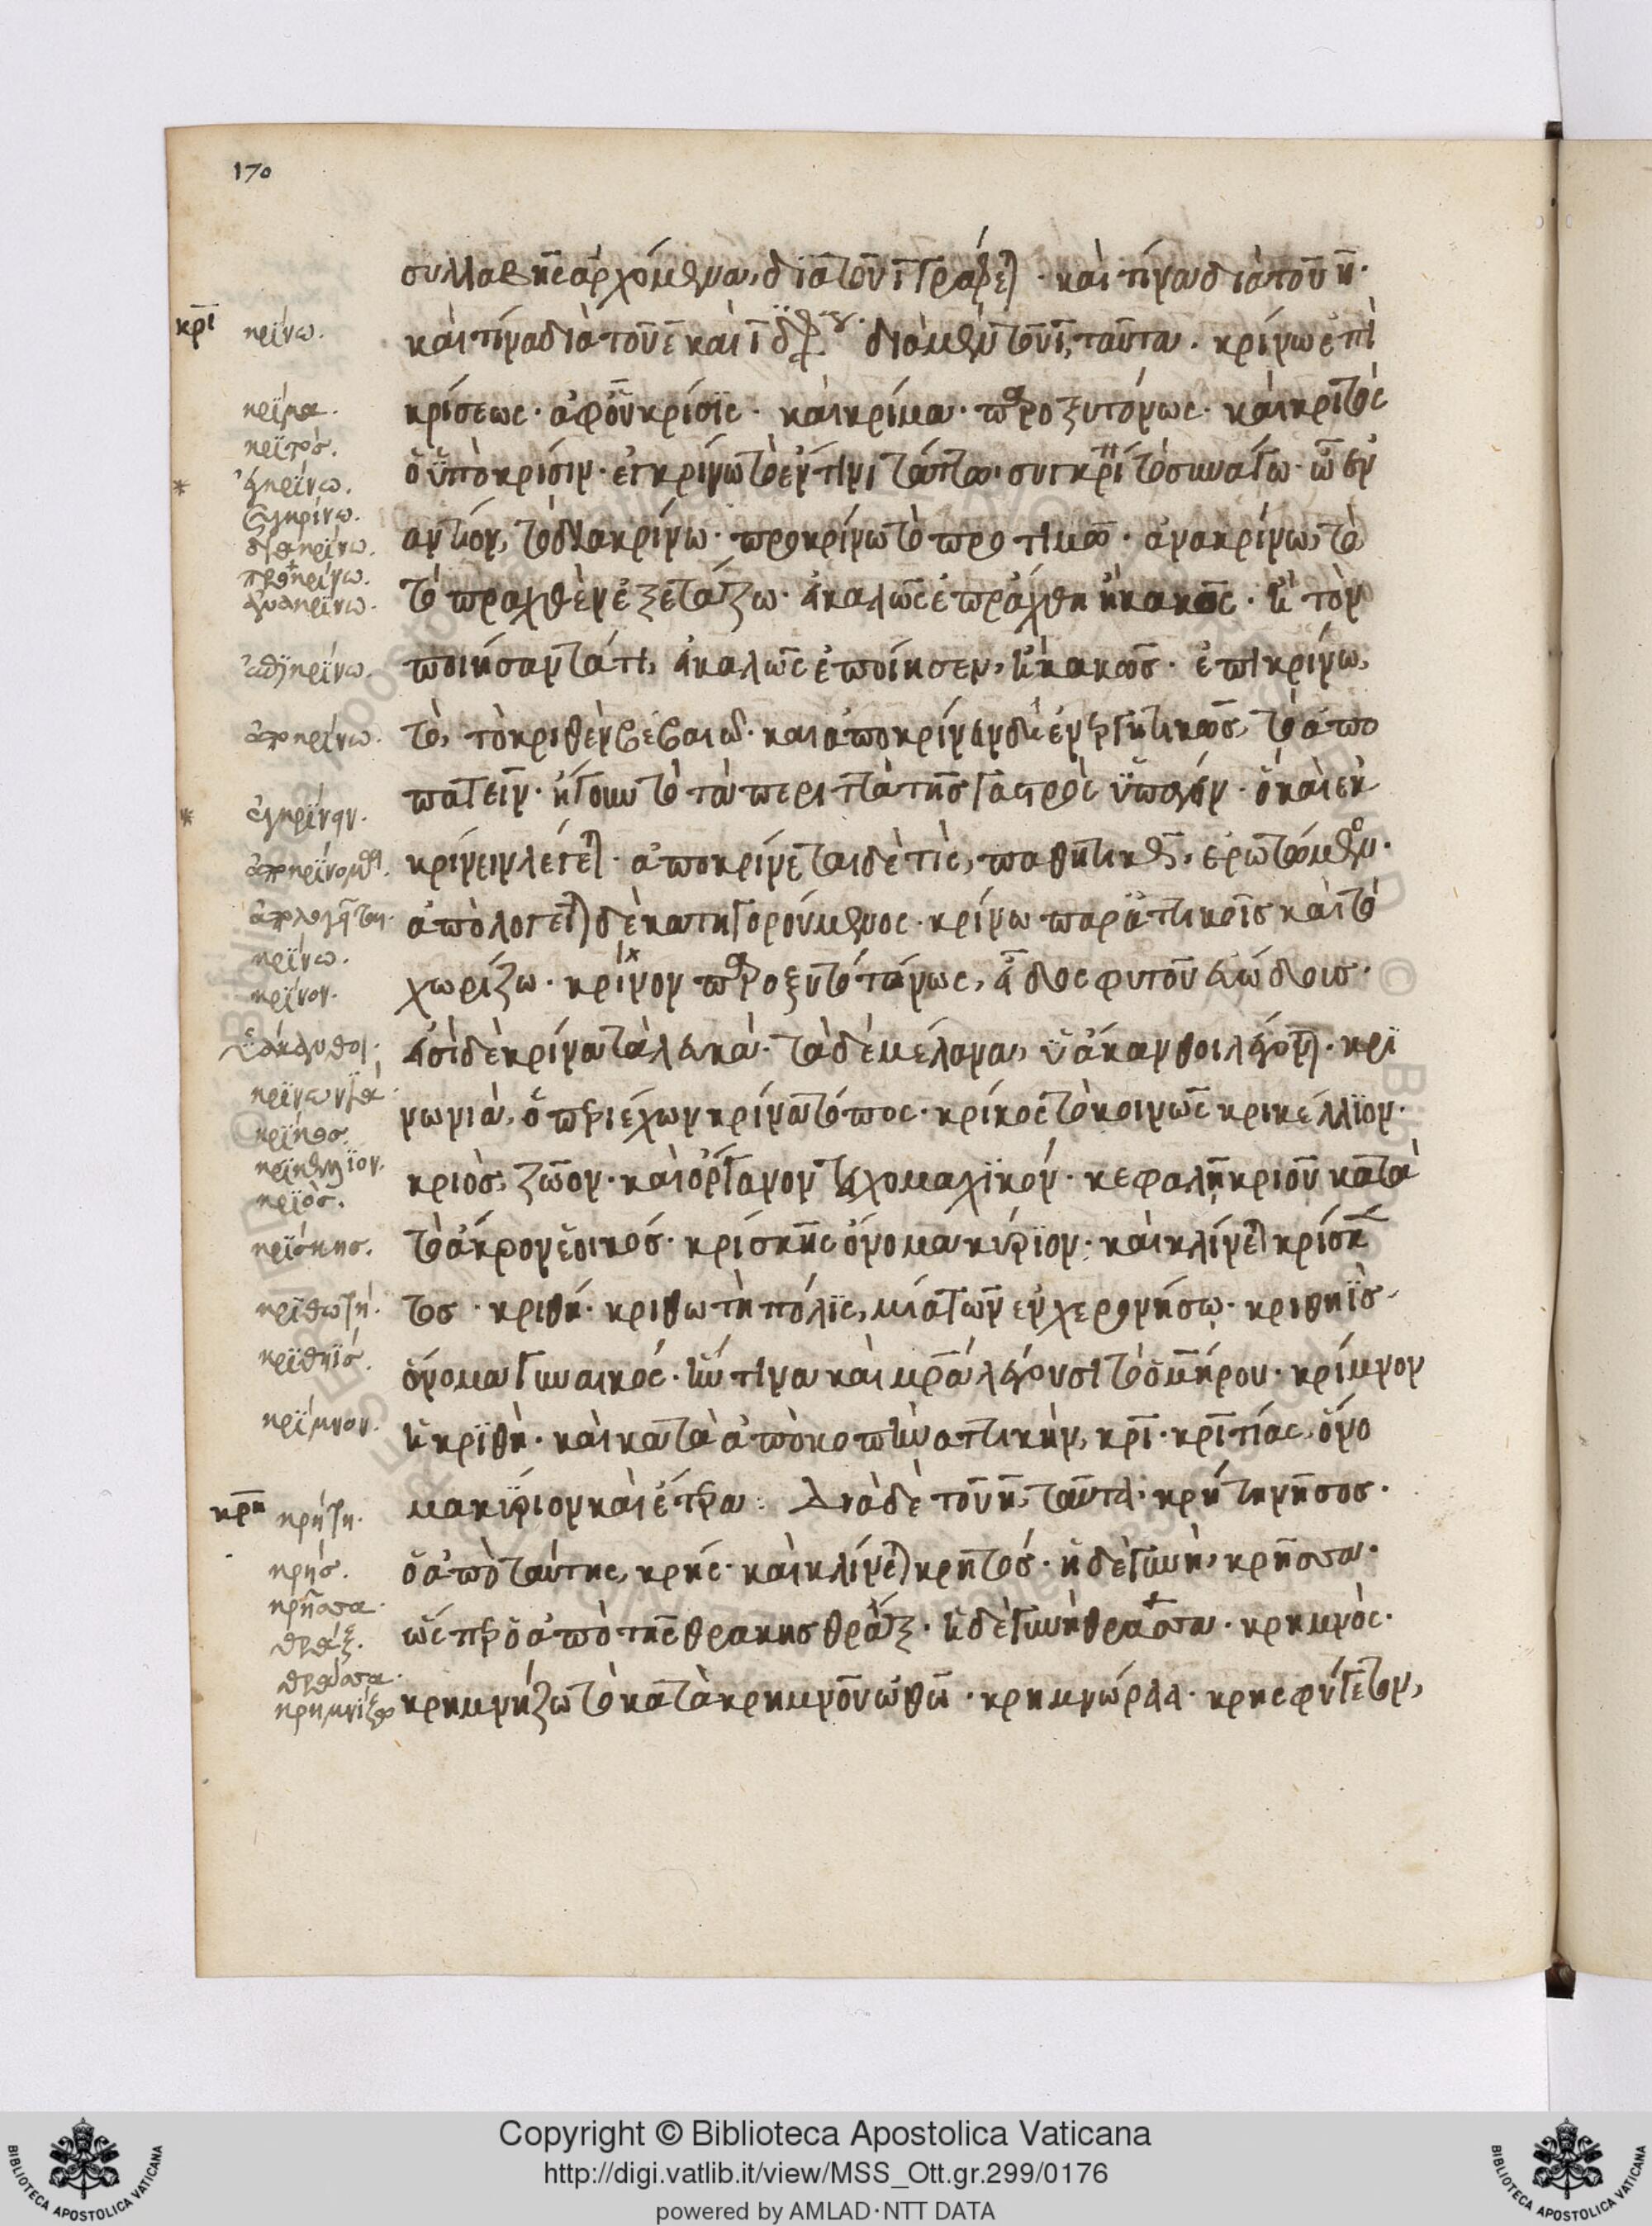 170
συλλαβῆς ἀρχόμενα, διὰ τοῦ ῑ γράφεται · καὶ τίνα διὰ τοῦ η̄ ·
κρῑ
κρίνω.
καὶ τίνα διὰ τοῦ ε̄ καὶ ῑ διὰ μὲν τοῦ ῑ, ταῦτα · κρίνω ἐπὶ
κρίμα.
κρίσεως · ἀφ' οὗ κρίσις · καὶ κρίμα · παροξυτόνως · καὶ κριτὸς
κριτός.
ὁ ὑπὸ κρίσιν · ἐγκρίνω τὸ ἔν τινι τάττω · συγκρίνω τὸ συνάγω · ὧ ἐν
ἐγκρίνω.
συγκρίνω.
διακρίνω.
αντίον, τὸ διακρίνω · προκρίνω τὸ προτιμῶ · ἀνακρίνω, τὸ
προκρίνω.
ἀνακρίνω.
τὸ πραχθὲν ἐξετάζω · εἰ καλῶς ἐπράχθη ἢ κακῶς · ἢ τὸν
ἐπικρίνω.
ποιήσαντά τι, εἰ καλῶς ἐποίησεν, ἢ κακῶς · ἐπικρίνω,
ἀποκρίνω.
τὸ, τὸ κριθὲν βεβαιῶ · καὶ ἀποκρίνειν δὲ ἐνεργητικῶς, τὸ ἀπο
πατεῖν · ἤγουν τὸ τὰ περιττὰ τῆς γαστρὸς ὑπάγειν · ὃ καὶ ἐκ
ἐκκρίνειν.
ἀποκρίνομαι.
κρίνειν λέγεται · ἀποκρίνεται δέ τις, παθητικῶς, ἐρωτώμενος ·
ἀπολογεῖται.
ἀπολογεῖται δὲ κατηγορούμενος · κρίνω παρ' ἀττικοῖς καὶ τὸ
κρίνω.
κρίνον.
χωρίζω · κρίνον παροξυτόνως, εἶδος φυτοῦ εὐώδους ·
ὑάκινθοι.
εἰσὶ δὲ κρίνα τὰ λευκά · τὰ δὲ μέλανα, ὑάκινθοι λέγονται · κρι
κρινωνιά.
νωνιὰ, ὁ περιέχων κρίνα τόπος · κρίκος τὸ κοινῶς κρικέλλιον ·
κρίκος.
κρικέλλιον.
κριός.
κριὸς, ζῶον · καὶ ὄργανον τειχομαχικόν · κεφαλῇ κριοῦ κατὰ
κρίσκης.
τὸ ἄκρον ἐοικός · κρίσκης ὄνομα κύριον · καὶ κλίνεται κρίσκεν
κριθωτή.
τος · κριθή · κριθωτὴ πόλις, μία τῶν ἐν χερονήσῳ · κριθηῒς
κριθηΐς.
ὄνομα γυναικός · ἥν τινα καὶ μητέρα λέγουσι τὸ ὁμήρου · κρίμνον
κρίμνον.
ἡ κριθή · καὶ κατὰ ἀποκοπὴν ἀττικὴν, κρῖ · κριτίας, ὄνο
κρη
κρήτη.
μα κύριον καὶ ἕτερα : Διὰ δὲ τοῦ η̄, ταῦτα · κρήτη νῆσος ·
κρής.
ὁ ἀπὸ ταύτης, κρής · καὶ κλίνεται κρητός · ἡ δὲ γυνὴ, κρῆσσα ·
κρῆσσα.
θρᾷξ.
ὥσπερ ὁ ἀπὸ τῆς θράκης θρᾷξ · ἡ δὲ γυνὴ θρᾷσσα · κρημνός ·
θρᾷσσα.
κρημνίζω
κρημνήζω τὸ κατὰ κρημνοῦ ὠθῶ · κρημνώρεια · κρησφύγετον,
Copyright © Biblioteca Apostolica Vaticana
http://digi.vatlib.it/view/MSS_Ott.gr.299/0176
powered by AMLAD·NTT DATA
BIBLIOTECA APOSTOLICA VATICANA
BIBLIOTECA APOSTOLICA VATICANA